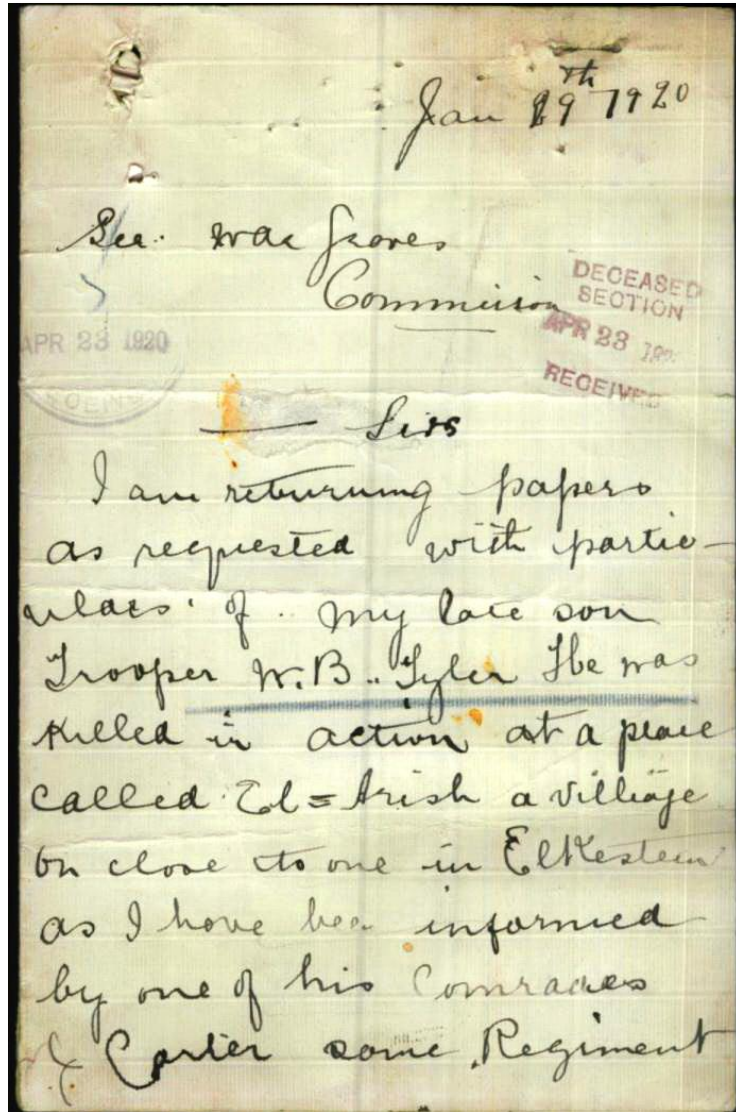 Jan 29th 1920
Sec. War Graves
Commission
DECEASED
SECTION
APR 23 192
RECEIVED
APR 23 1920
Sirs
I am returning papers
as requested with partic-
ulars. of .. my late son
Trooper W.B.. Tyler He was
killed in action at a place
called El=Arish a villiage
on close to one in
as I have been informed
by one of his Comrades
J Carter same Regiment